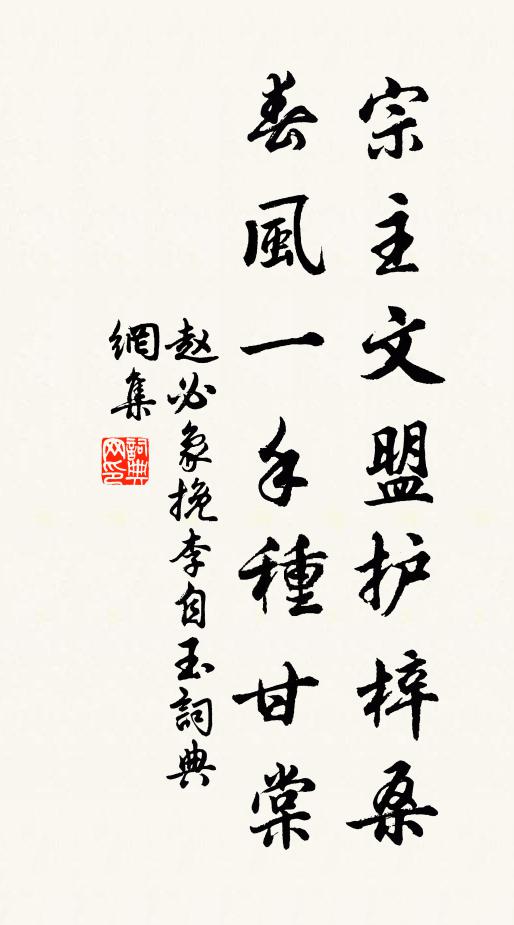 宗主文盟护梓桑
春風一手種甘棠
赵必象挽李自玉詞典
網集
詞典網印